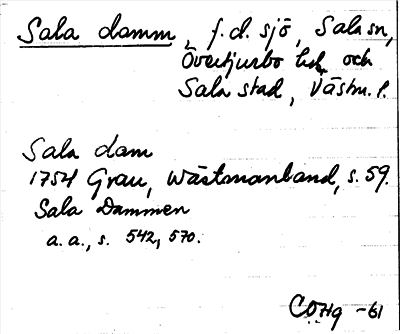 Sala damm, f.d. sjö, Sala sn,
Övertjurbo hd och
Sala stad, Västm. l.
Sala dam
1754 Grau, Wästmanland, s. 59.
Sala Dammen
a.a., s. 542, 570.
COHg -61